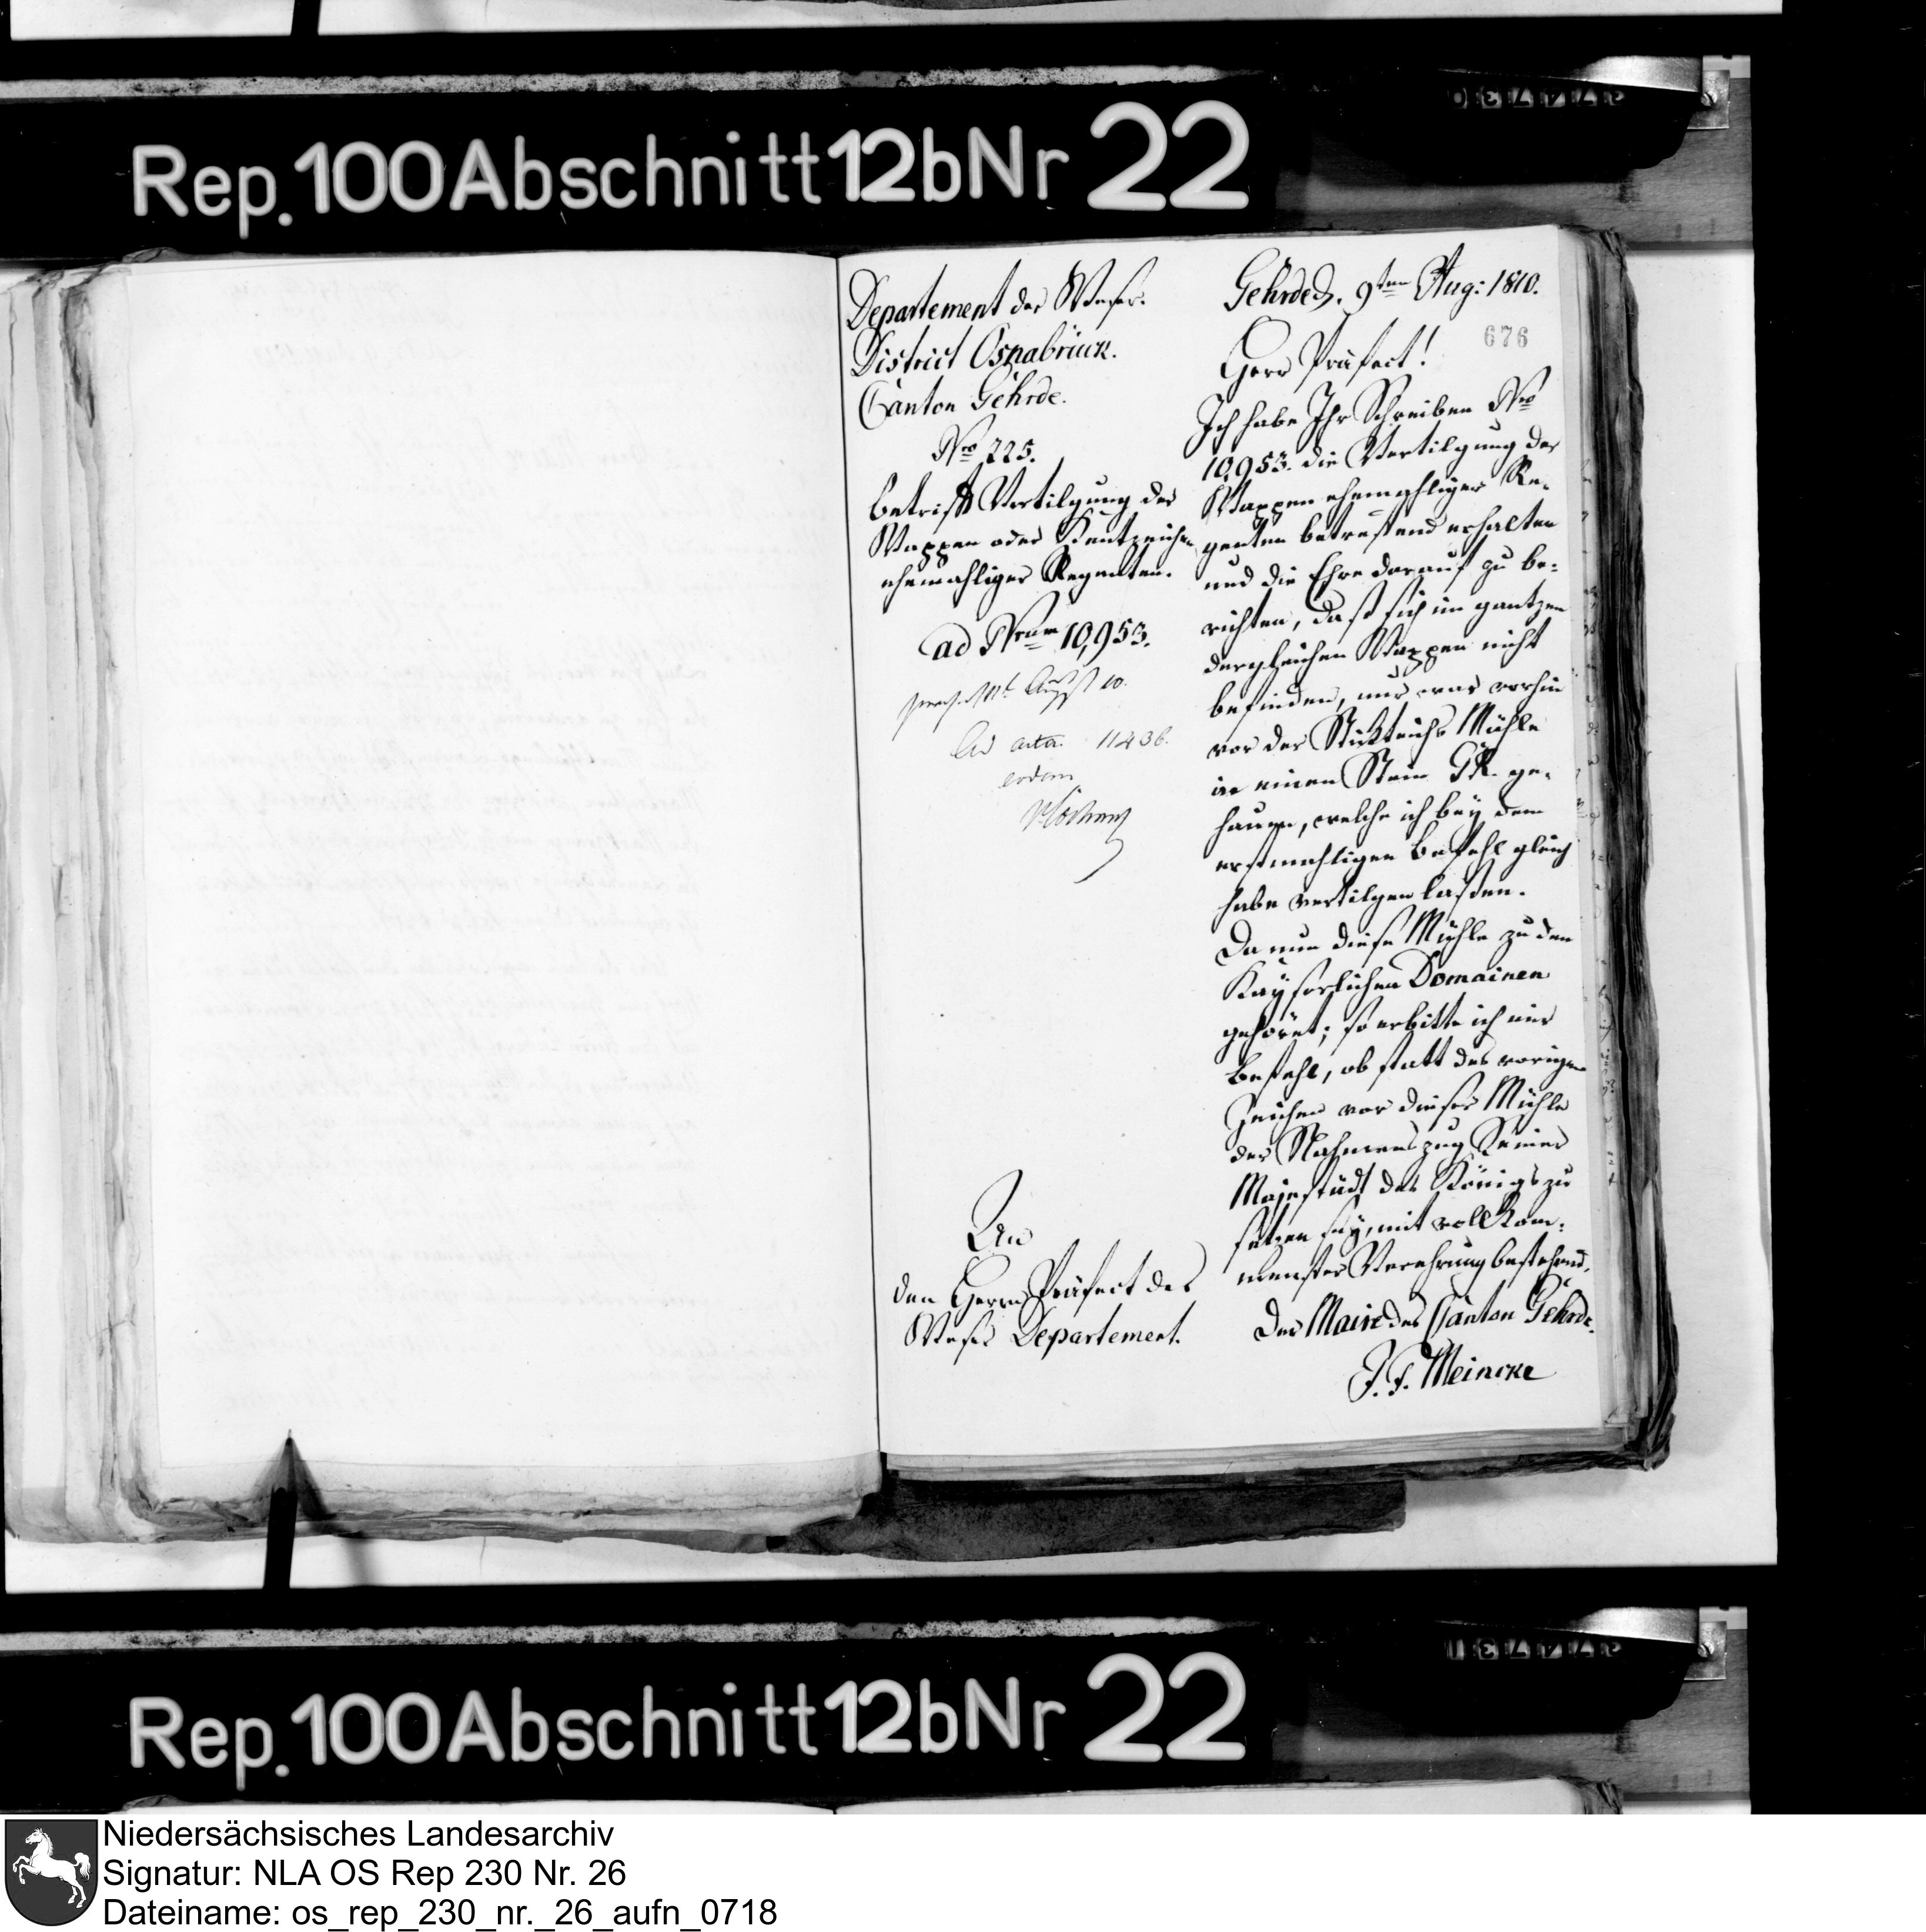 Rep. 100 Abschnitt 12b Nr 22
Departement der Weser.
District Osnabrück.
Canton Gehrde.
Nro 225.
betrifft Vertilgung der
Wappen oder Kentzeichen
ehemahliger Regenten.
ad Nrum 10,953.
praes. Aug 10.
Ad acta. 11436.
eodem
An
den Herrn Präfect des
Weser Departement.
Gehrde d. 9ten Aug: 1810.
676
Herr Präfect!
Ich habe Ihr Schreiben Nro
10,953. die Vertilgung der
Wappen ehemahliger Re-
genten betrefend erhalten
und die Ehre darauf zu be-
richten, daß sich im gantzen
dergleichen Wappen nicht
befinden, nur war vorhin
vor der Mühle
in einen Stein GR. ge-
hauen, welche ich bey dem
erstmahligen Befehl gleich
habe vertilgen laßen.
Da nun diese Mühle zu den
Kayserlichen Domainen
gehöret; so erbitte ich mir
Befehl, ob statt des vorigen
Zeichen vor dieser Mühle
der Nahmenszug Seiner
Majestädt des Königs zu
setzen sey, mit vollkom-
menster Verehrung bestehend,
Der Maire des Canton Gehrde.
J. F. Meincke
Rep. 100 Abschnitt 12b Nr 22
Niedersächsisches Landesarchiv
Signatur: NLA OS Rep 230 Nr. 26
Dateiname: os_rep_230_nr._26_aufn_0718